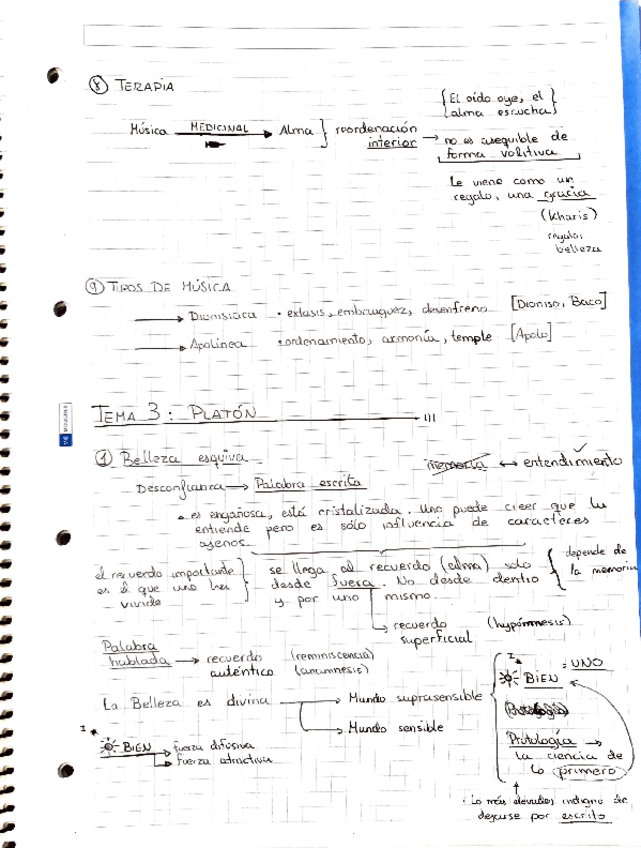 ⑧ TERAPIA
Música MEDICINAL → Alma } reordenación interior → no es asequible de forma volitiva
{El oído oye, el alma escucha}
Le viene como un regalo, una gracia
(Kharis)
regalo,
belleza
⑨ TIPOS DE MÚSICA
→ Dionisíaca · extasis, embriaguez, desenfreno [Dioniso, Baco]
→ Apolínea · ordenamiento, armonía, temple [Apolo]
TEMA 3: PLATÓN
① Belleza esquiva
memoria ↔ entendimiento ✓
Desconfianza → Palabra escrita
• es engañosa, está cristalizada. Uno puede creer que lo
entiende pero es sólo influencia de caracteres
ajenos.
el recuerdo importante
es el que uno ha
vivido
se llega al recuerdo (alma) solo
desde fuera. No desde dentro
y por uno mismo.
depende de
la memoria
→ recuerdo superficial (hypómnesis)
Palabra hablada → recuerdo auténtico (reminiscencia) (anamnesis)
La Belleza es divina → Mundo suprasensible
→ Mundo sensible
BIEN → fuerza difusiva
→ fuerza atractiva
BIEN = UNO
Protología →
la ciencia de
lo primero
· Lo más elevado, indigno de
dejarse por escrito